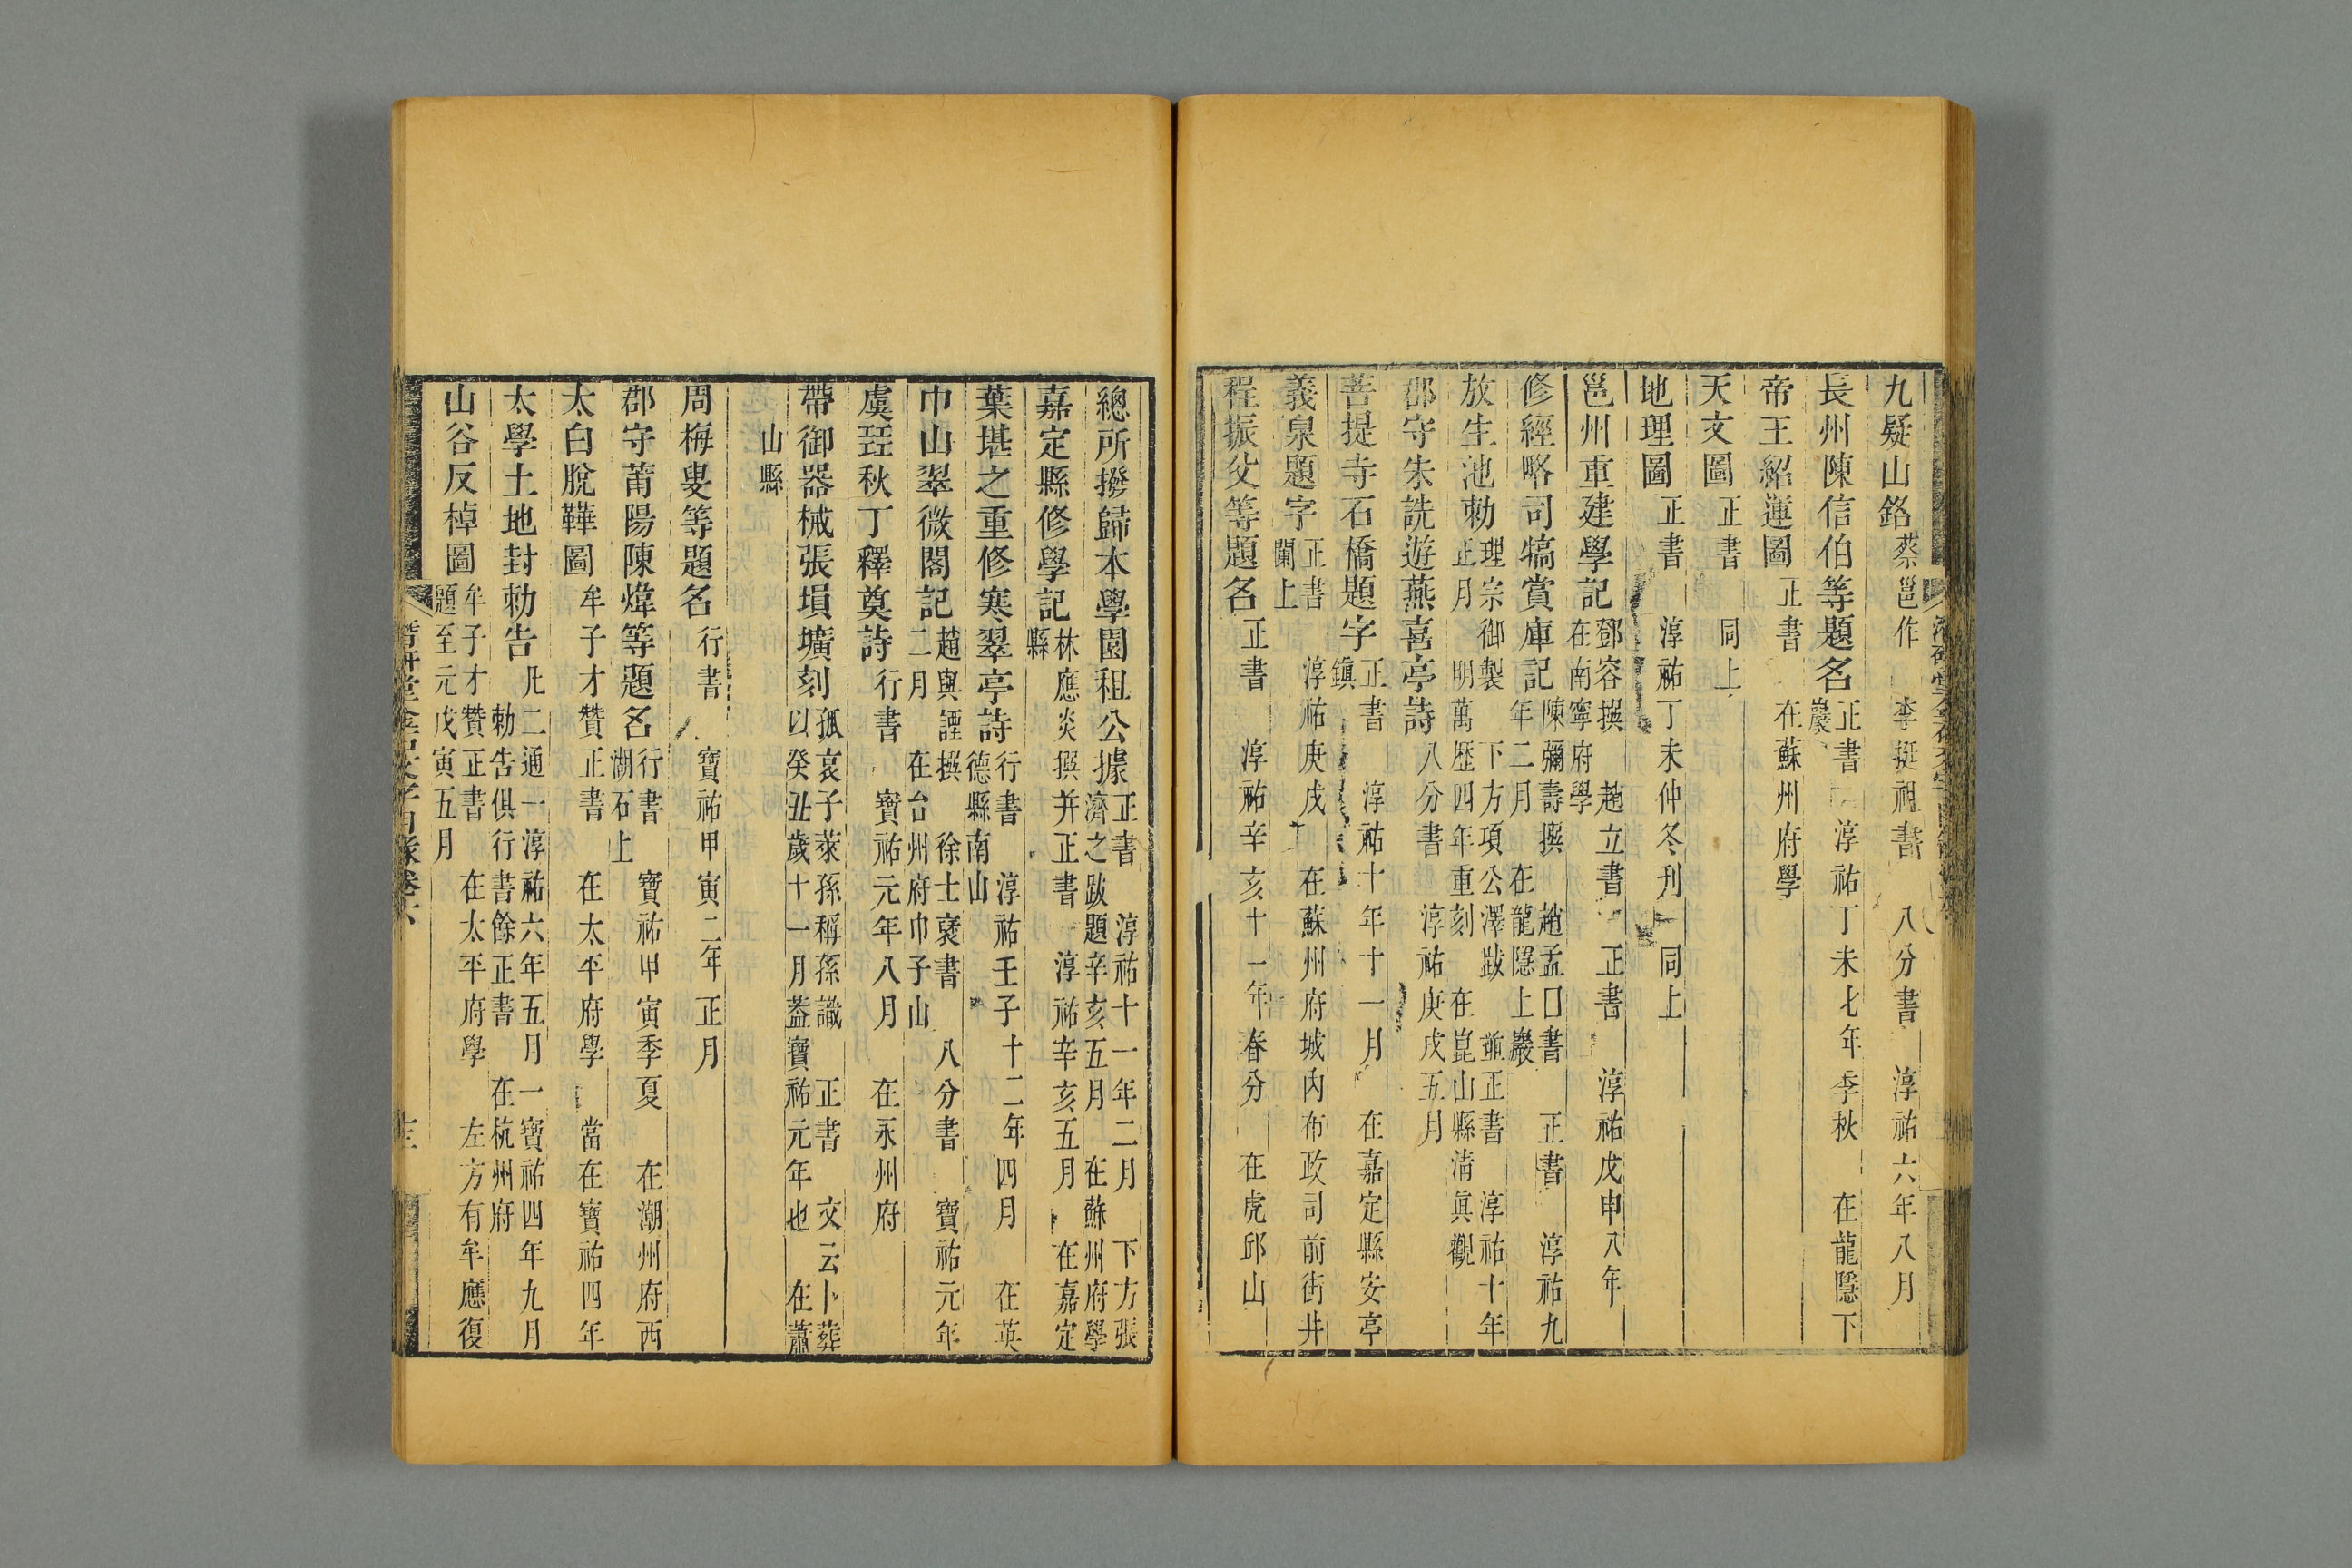 九疑山銘 蔡邕作 李挺祖書 八分書 淳祐六年八月
長州陳信伯等題名 正書 淳祐丁未七年季秋 在龍隱下巖
帝王紹運圖 正書 在蘇州府學
天文圖 正書 同上
地理圖 正書 淳祐丁未仲冬刋 同上
邕州重建學記 鄧容撰 趙立書 正書 淳祐戊申八年 在南寧府學
修經略司犒賞庫記 陳彌壽撰 趙孟囗書 正書 淳祐九年二月 在龍隱上巖
放生池勅 理宗御製 下方項公澤跋 並正書 淳祐十年正月 明萬歷四年重刻 在崑山縣清眞觀
郡守朱詵遊燕喜亭詩 八分書 淳祐庚戌五月
菩提寺石橋題字 正書 淳祐十年十一月 在嘉定縣安亭鎭
義泉題字 正書 淳祐庚戌 在蘇州府城內布政司前街井闌上
程振父等題名 正書 淳祐辛亥十一年春分 在虎邱山
總所撥歸本學園租公據 正書 淳祐十一年二月 下方張濟之跋題辛亥五月 在蘇州府學
嘉定縣修學記 林應炎撰并正書 淳祐辛亥五月 在嘉定縣
葉堪之重修寒翠亭詩 行書 淳祐壬子十二年四月 在英德縣南山
巾山翠微閣記 趙與諲撰 徐士褎書 八分書 寶祐元年二月 在台州府巾子山
虞珏秋丁釋奠詩 行書 寶祐元年八月 在永州府
帶御器械張塤壙刻 孤哀子萊孫稱孫識 正書 文云卜葬以癸丑歲十一月葢寶祐元年也 在蕭
山縣
周梅叟等題名 行書 寶祐甲寅二年正月
郡守莆陽陳煒等題名 行書 寶祐甲寅季夏 在潮州府西湖石上
太白脫鞾圖 牟子才贊 正書 在太平府學 當在寶祐四年
太學土地封勅告 凡二通一淳祐六年五月一寶祐四年九月勅告俱行書餘正書 在杭州府
山谷反棹圖 牟子才贊 正書 在太平府學 左方有牟應復題至元戊寅五月
潛研堂金石文字目錄卷六